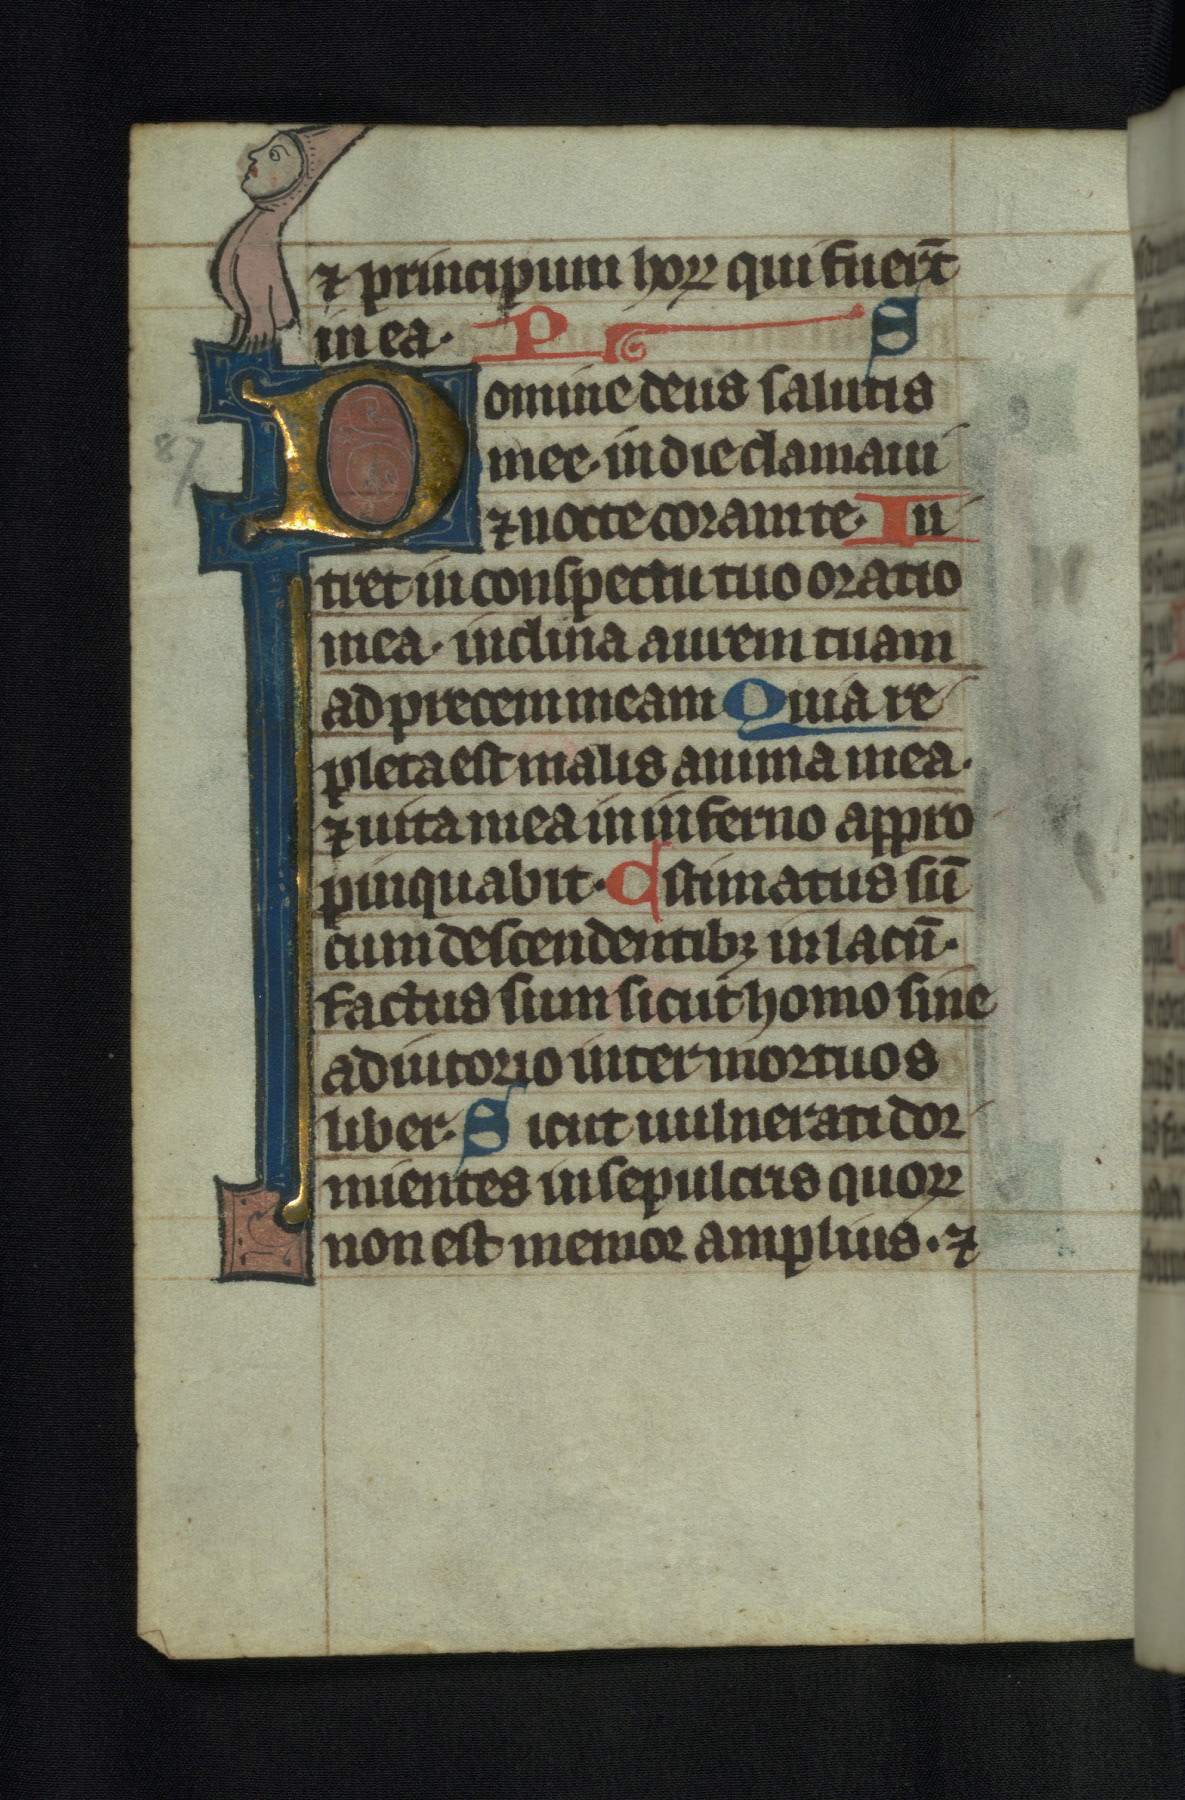 ⁊ principum hoꝝ qui fuer̄t
in ea. P S
Domine deus salutis
mee. in die clamaui
⁊ nocte coram te. In
tret in conspectu tuo oratio
mea. inclina aurem tuam
ad precem meam Quia re
pleta est malis anima mea.
⁊ uita mea in inferno appro
pinquabit. Estimatus sū
cum descendentibꝫ in lacū.
factus sum sicut homo sine
adiutorio inter mortuos
liber. Sicut uulnerati dor
mientes in sepulcris quoꝝ
non est memor amplius. ⁊
87